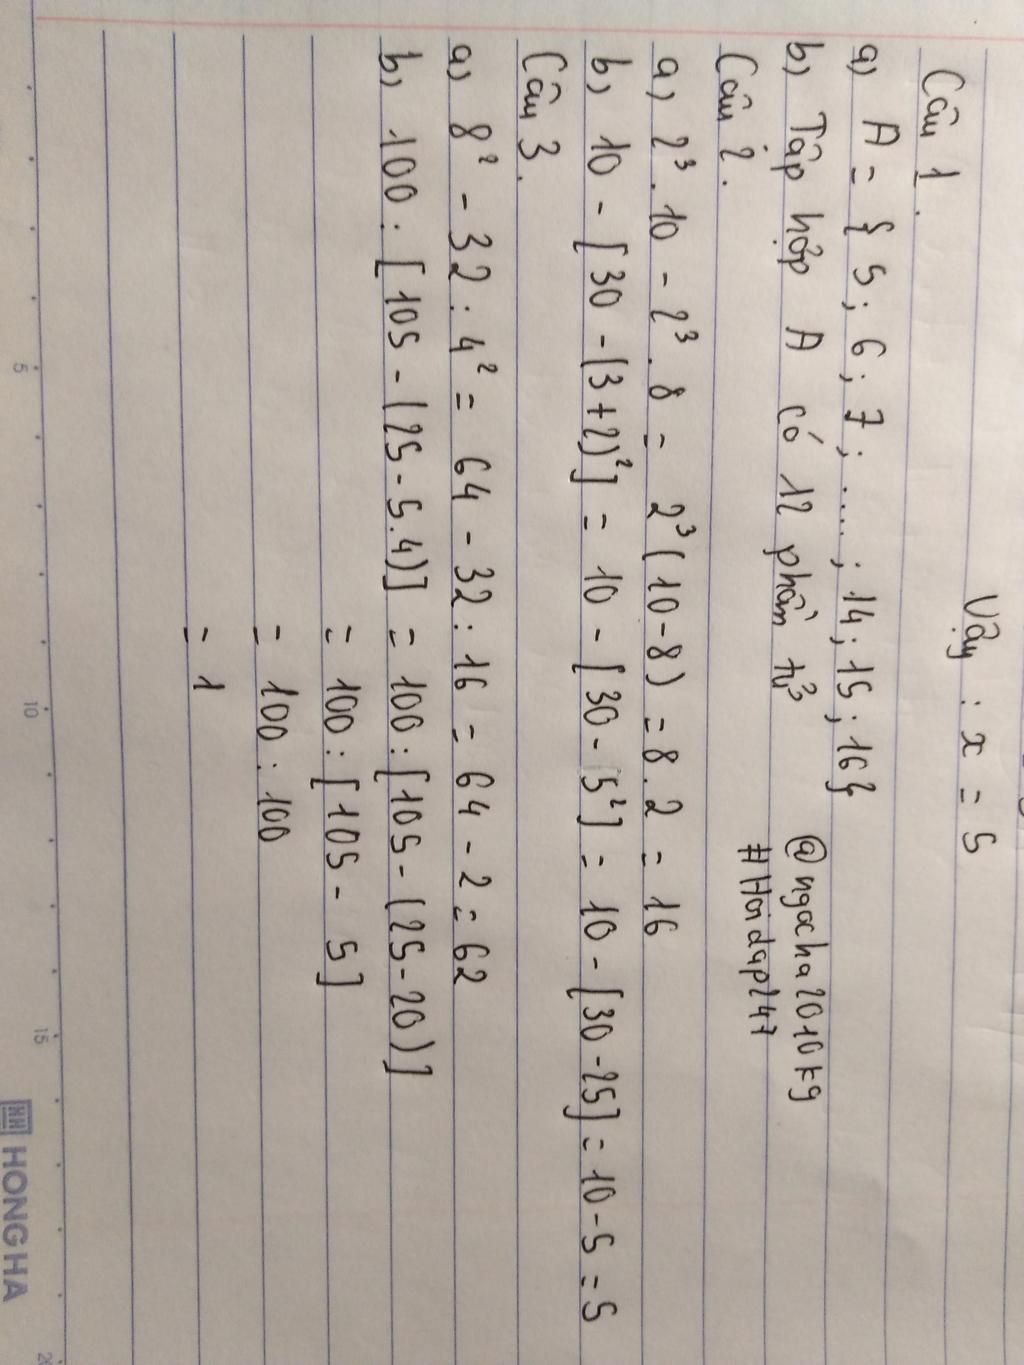 Vậy : x = 5
Câu 1.
a) A = { 5 ; 6 ; 7 ; .... ; 14 ; 15 ; 16 }
b) Tập hợp A có 12 phần tử
@ngocha2010kg
#Hoidap247
Câu 2.
a) 2³ . 10 - 2³ . 8 = 2³ ( 10 - 8 ) = 8 . 2 = 16
b) 10 - [ 30 - (3 + 2)² ] = 10 - [ 30 - 5² ] = 10 - [ 30 - 25 ] = 10 - 5 = 5
Câu 3.
a) 8² - 32 : 4² = 64 - 32 : 16 = 64 - 2 = 62
b) 100 : [ 105 - (25 - 5.4) ] = 100 : [ 105 - (25 - 20) ]
= 100 : [ 105 - 5 ]
= 100 : 100
= 1
5 10 15
HONG HA